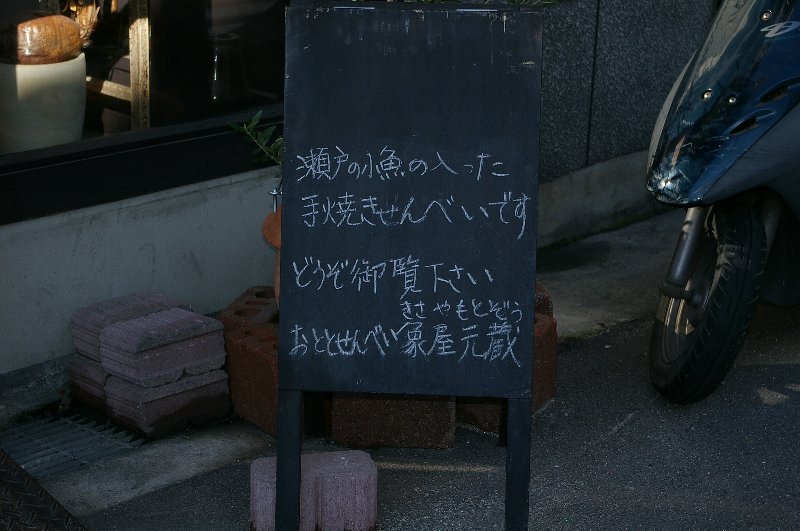 瀬戸の小魚の入った
手焼きせんべいです
どうぞ御覧下さい
きさやもとぞう
おととせんべい象屋元蔵